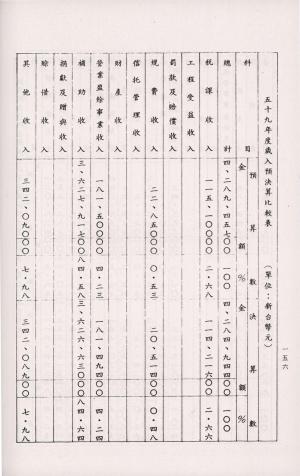 一五六
五十九年度歲入預決算比較表　（單位：新台幣元）
科目　預算數　金額　%　決算數　金額　%
總計　四、二八九、四五七〇〇　一〇〇　四、二八四、九四〇〇〇　一〇〇
稅課收入　一一五、一〇〇〇〇　二・六八　一一四、二一六〇〇　二・六六
工程受益收入
罰款及賠償收入
規費收入　二二、八五〇〇〇　〇・五三　二〇、五一四〇〇　〇・四八
信托管理收入
財產收入
營業盈餘事業收入　一八一、五〇〇〇〇　四・二三　四・二四
補助收入　三、六二七、九一七〇〇　八四・五八　三、六二六、六三〇〇〇　八四・六四
捐獻及贈與收入
賒借收入
其他收入　三四二、〇九〇〇〇　七・九八　七・九八